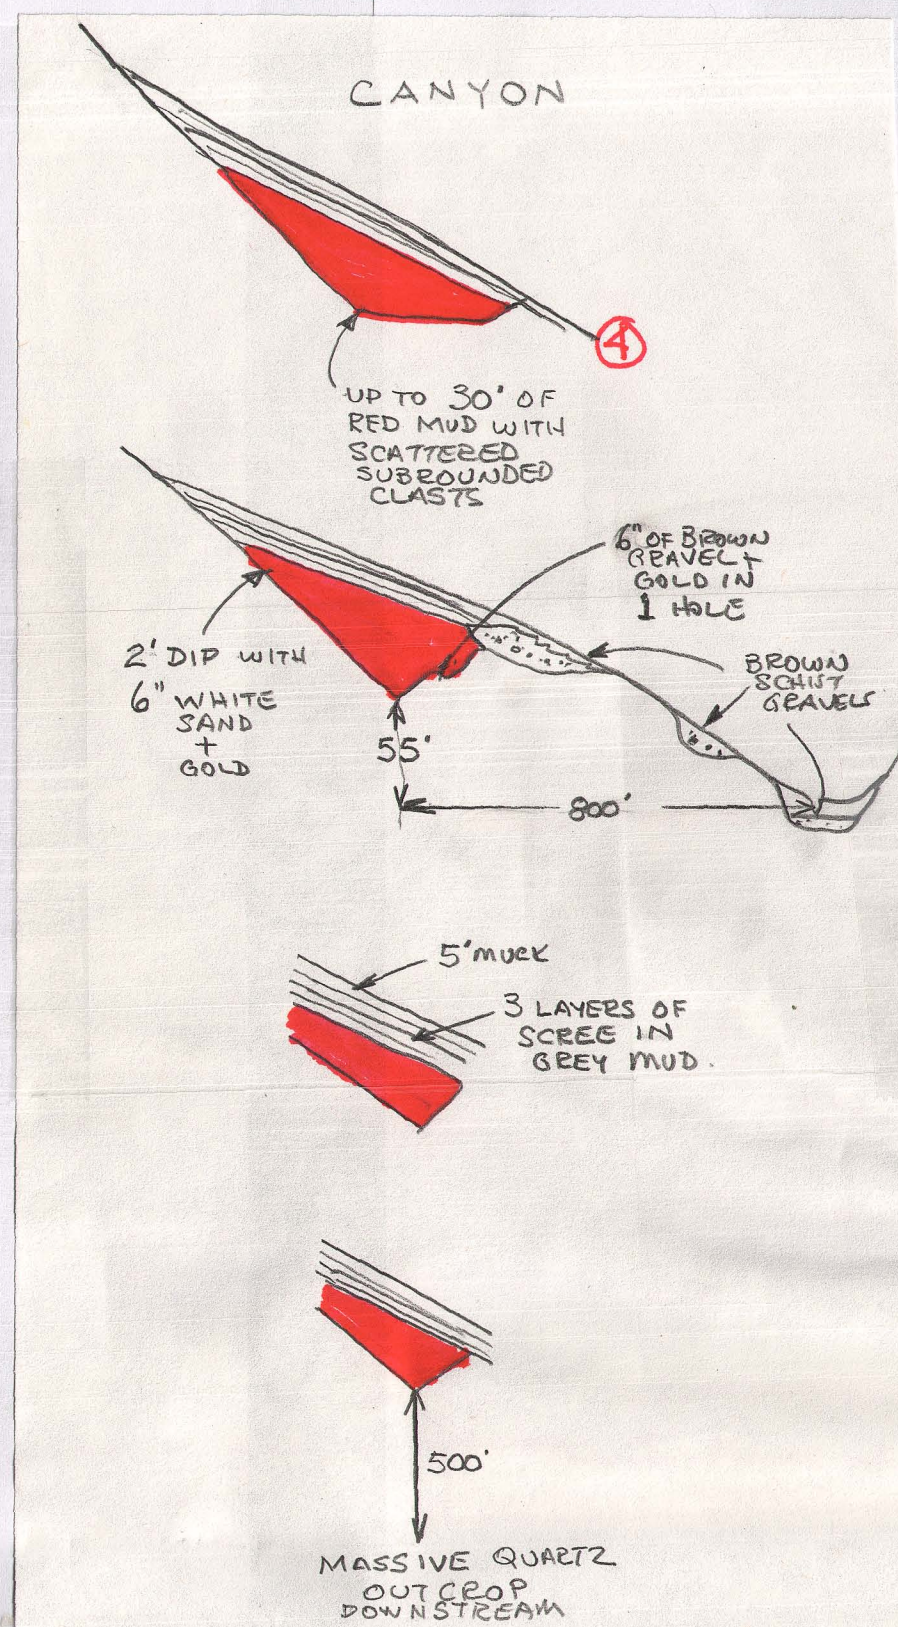 CANYON
4
UP TO 30' OF
RED MUD WITH
SCATTERED
SUBROUNDED
CLASTS
6" OF BROWN
GRAVEL +
GOLD IN
1 HOLE
2' DIP WITH
6" WHITE
SAND
+
GOLD
BROWN
SCHIST
GRAVELS
55'
800'
5' MUCK
3 LAYERS OF
SCREE IN
GREY MUD.
500'
MASSIVE QUARTZ
OUTCROP
DOWNSTREAM